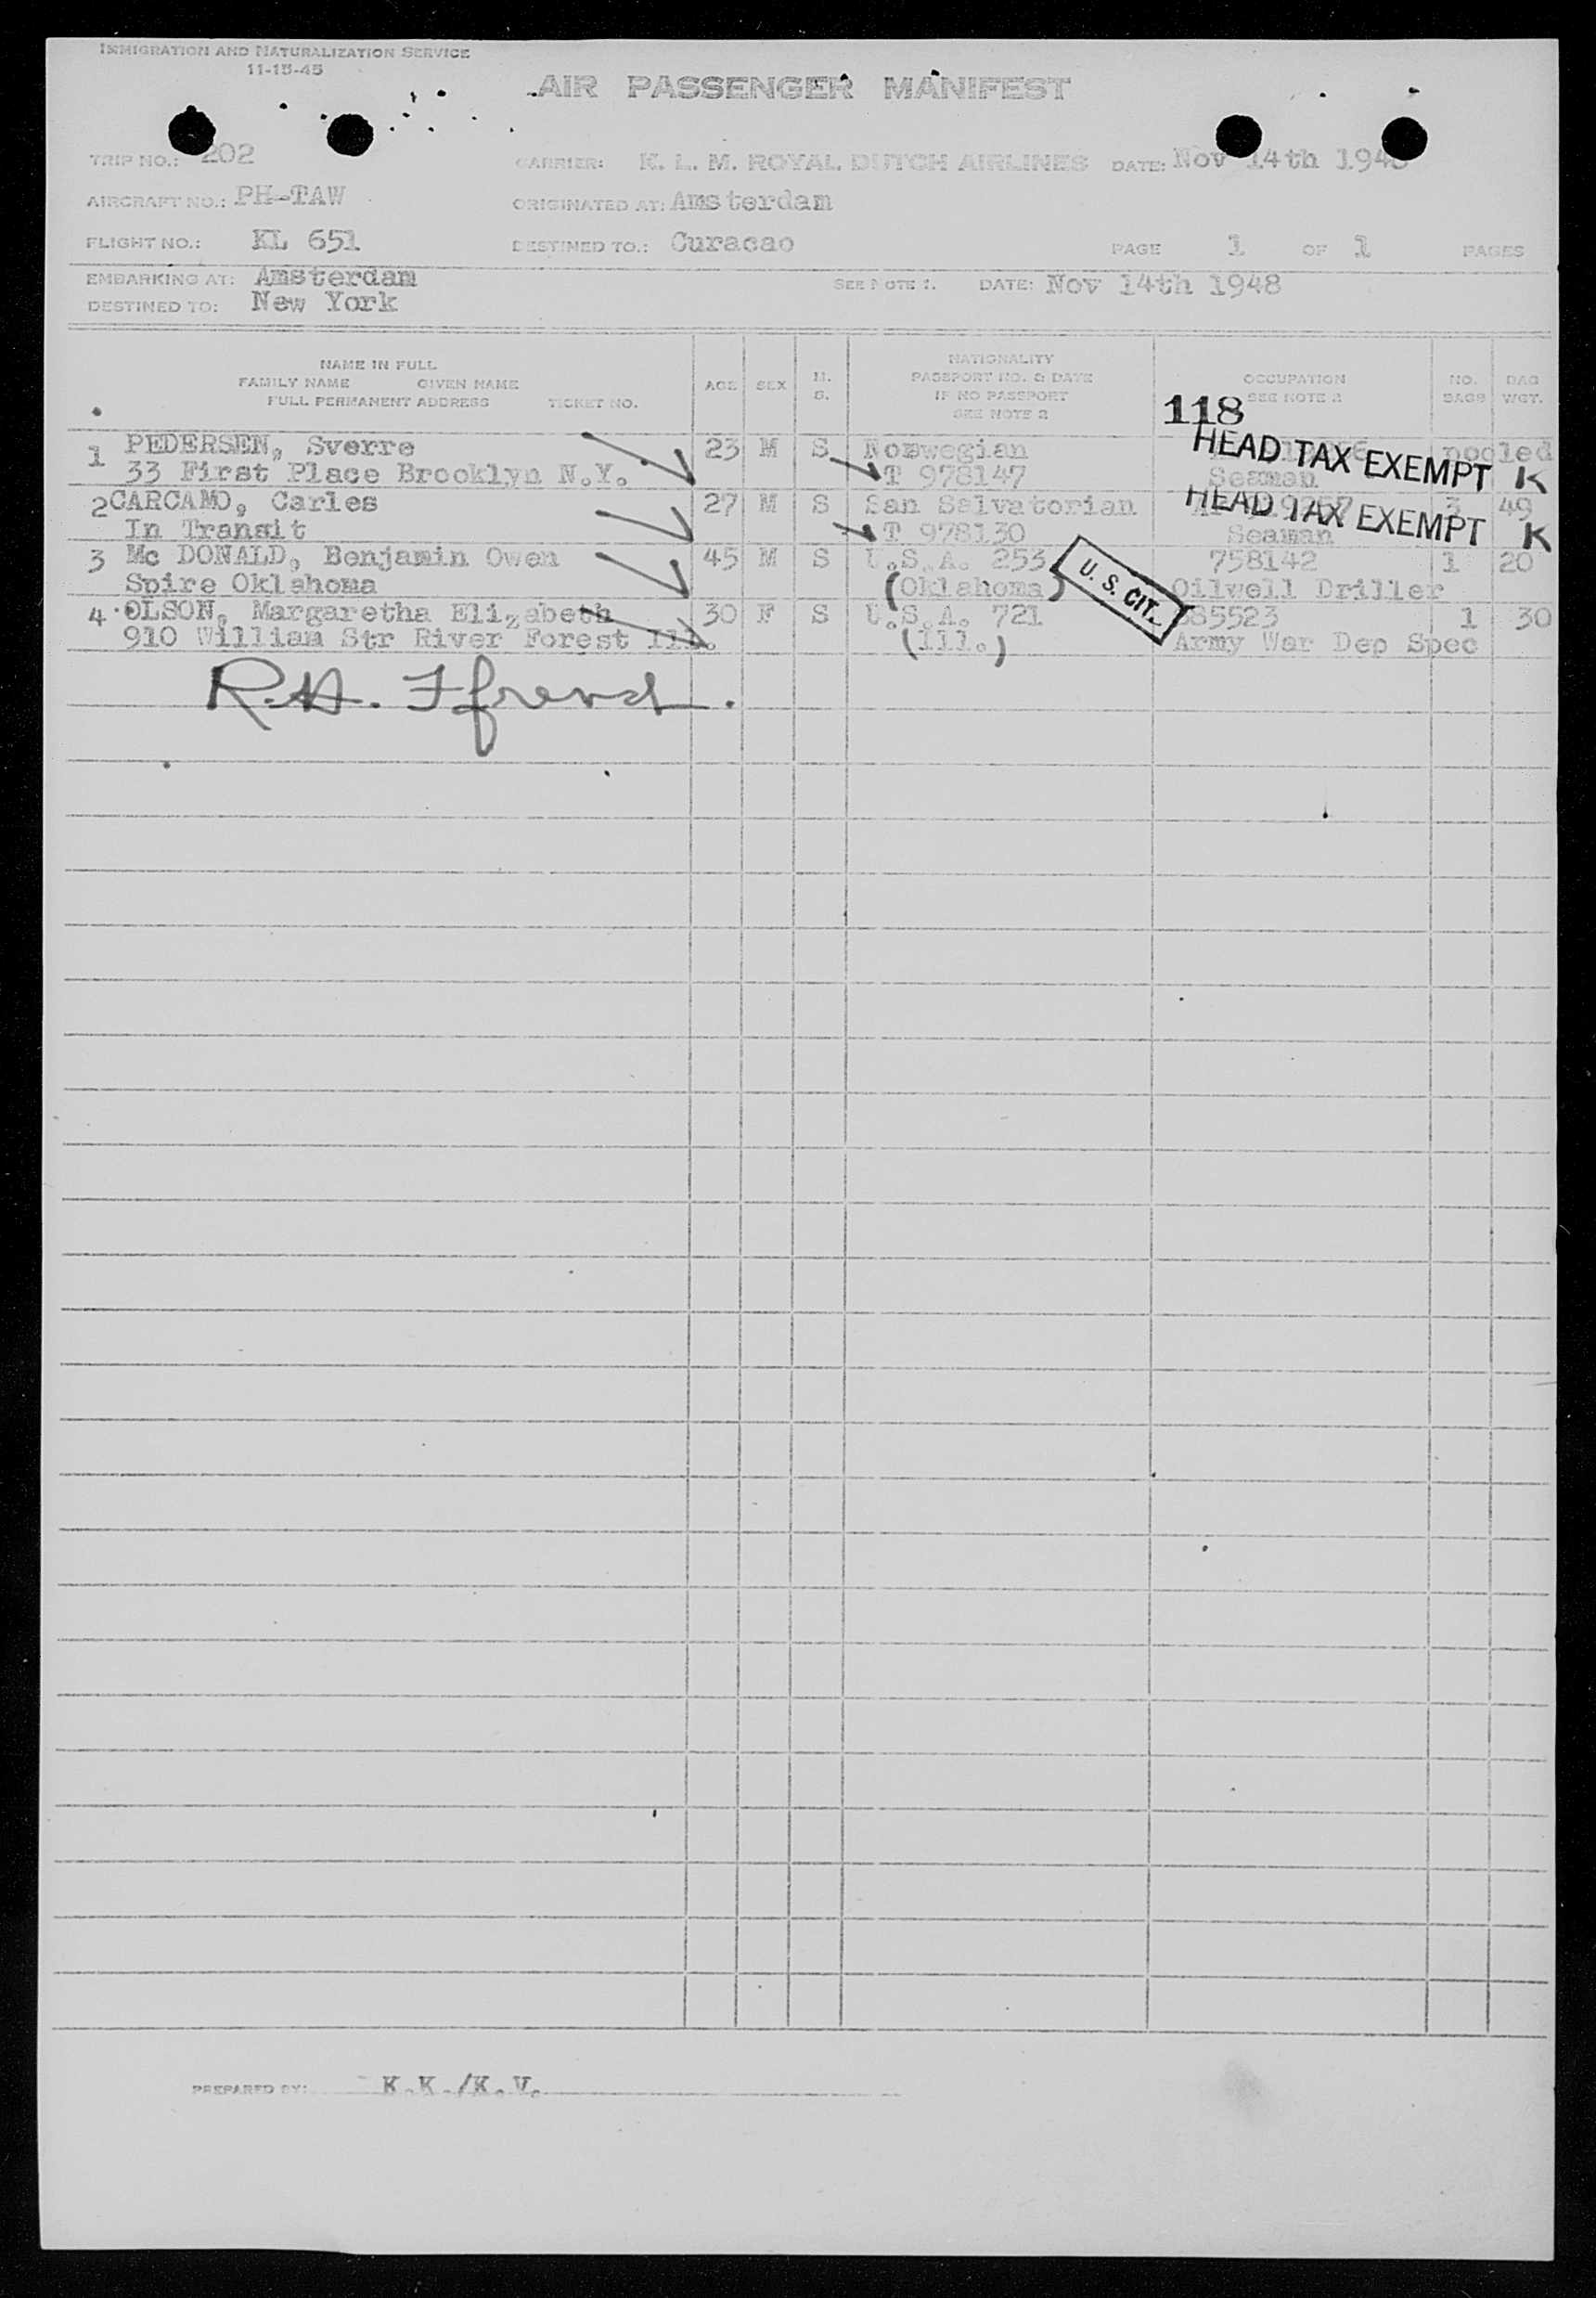 IMMIGRATION AND NATURALIZATION SERVICE
11-15-45
AIR PASSENGER MANIFEST
TRIP NO.: 202 CARRIER: K. L. M. ROYAL DUTCH AIRLINES DATE: Nov 14th 1948
AIRCRAFT NO.: PH-TAW ORIGINATED AT: Amsterdam
FLIGHT NO.: KL 651 DESTINED TO.: Curacao PAGE 1 OF 1 PAGES
EMBARKING AT: Amsterdam SEE NOTE 1. DATE: Nov 14th 1948
DESTINED TO: New York
NAME IN FULL
FAMILY NAME GIVEN NAME
FULL PERMANENT ADDRESS TICKET NO.
AGE SEX M. S.
NATIONALITY
PASSPORT NO. & DATE
IF NO PASSPORT
SEE NOTE 2
OCCUPATION
SEE NOTE 2
NO. BAGS
BAG WGT.
118
1 PEDERSEN, Sverre 23 M S Norwegian pooled
33 First Place Brooklyn N.Y. T 978147 Seaman
HEAD TAX EXEMPT K
2 CARCAMO, Carles 27 M S San Salvatorian 3 49
In Transit T 978130 Seaman
HEAD TAX EXEMPT K
3 Mc DONALD, Benjamin Owen 45 M S U.S.A. 253 758142 1 20
Spire Oklahoma (Oklahoma) Oilwell Driller
U. S. CIT.
4 OLSON, Margaretha Elizabeth 30 F S U.S.A. 721 585523 1 30
910 William Str River Forest Ill. (Ill.) Army War Dep Spec
R.H.
PREPARED BY: K.K./K.V.